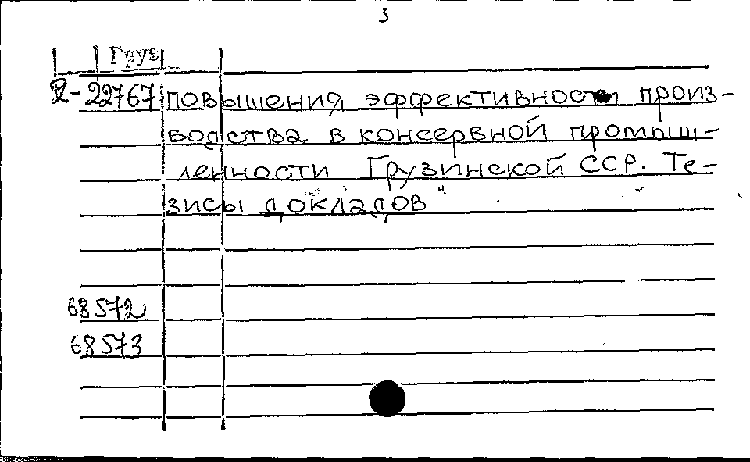 3
Груз
R-22767 повышения эффективности произ-
водства в консервной промыш-
ленности Грузинской ССР. Те-
зисы докладов"
68572
68573